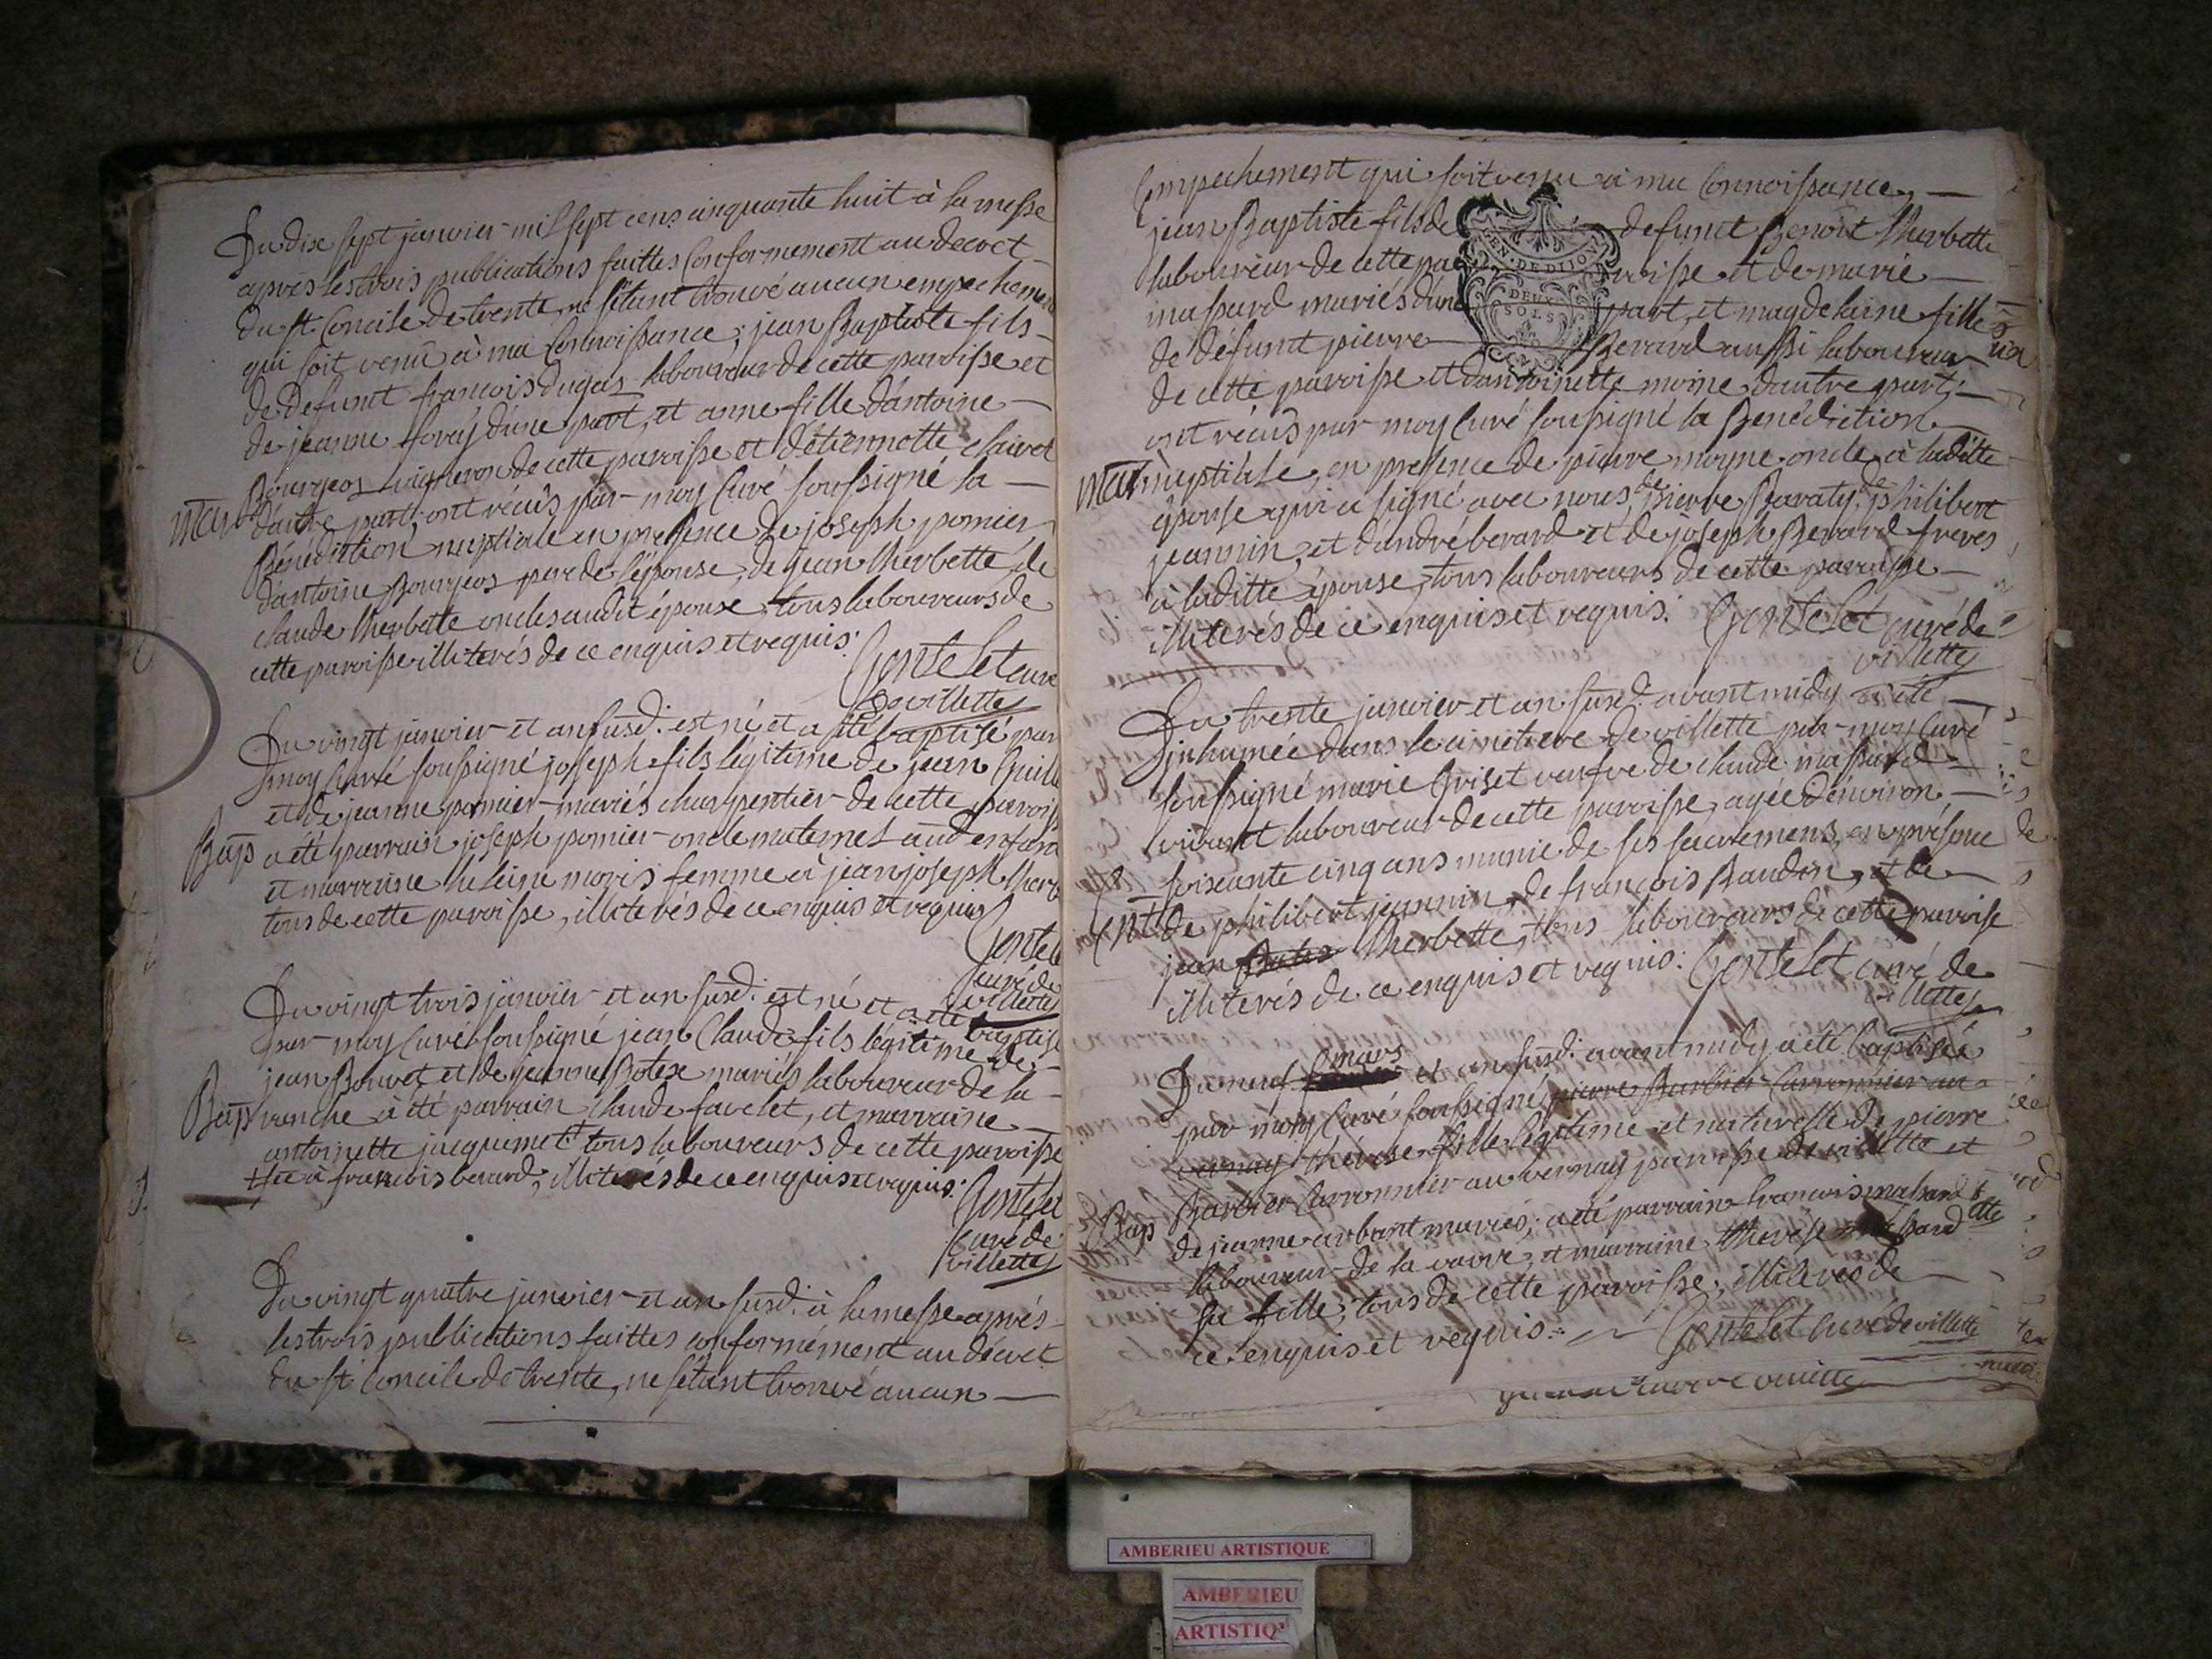 Du dix sept janvier mil sept cens cinquante huit à la messe
après les trois publications faittes Conformement au decret
du st. Concile de trente, ne s'étant trouvé aucun empechement
qui soit venû à ma Connoissance; jean Baptiste fils
de defunt francois dugas laboureur de cette paroisse et
de jeanne d'une part, et anne fille d'antoine
Bourjeos vigneron de cette paroisse et d'étiennette
Mar d'autre part, ont récûs par moy Curé soussigné la
Bénédiction nuptiale en presence de joseph pomier,
d'antoine Bourjeos pere de l'épouse, de jean therbette, de
claude therbette oncles audit épouse, tous laboureurs de
cette paroisse illiterés de ce enquis et requis. Gontelet curé
De villette
Du vingt janvier et an susd. est né et a été baptisé par
moy Curé soussigné joseph fils légitime de jean
et de jeanne pomier mariés charpentier de cette
Bap a été parrain joseph pomier oncle maternel aud. enfant
et marraine heleine moris femme à jean joseph
tous de cette paroisse, illiterés de ce enquis et requis
Gontelet
curé de
villette
Du vingt trois janvier et an susd. est né et a été baptisé
par moy Curé soussigné jean Claude fils légitime de
jean Bouvet et de jeanne mariés laboureur de la
Bap ranche a été parrain Claude favelet, et marraine
antoinette jacquemet tous laboureurs de cette paroisse
à francois berard, illiterés de ce enquis et requis.
Gontelet
Curé de
villette
Du vingt quatre janvier et an susd. à la messe après
les trois publications faittes conformément au décret
du st. Concile de trente, ne s'étant trouvé aucun
Empechement qui soit venu à ma Connoissance,
jean Baptiste fils de defunt Benoît therbette
laboureur de cette paroisse et de marie
massard mariés d'une part, et magdelaine fille
de défunt pierre Berard aussi laboureur
de cette paroisse et d'antoinette moine d'autre part,
ont récûs par moy Curé soussigné la Bénédiction
Mar nuptiale, en presence de pierre moyne oncle à laditte
épouse qui a signé avec nous, de pierre Baraty, de philibert
jeannin, et d'andré berard et de joseph Berard freres
à laditte épouse, tous laboureurs de cette paroisse
illiterés de ce enquis et requis. Gontelet curé de
villette
Du trente janvier et an susd. avant midy a été
inhumée dans le cimetiere de villette par moy Curé
soussigné marie Griset veufve de claude massard
vivant laboureur de cette paroisse, agée d'environ
soixante cinq ans munie de ses sacremens, en présence
Ent de philibert jeannin, de francois Baudin, et de
jean therbette, tous laboureurs de cette paroisse
illiterés de ce enquis et requis. Gontelet curé de
villette
Du neuf mars et an susd. avant midy a été baptisée
par moy Curé soussigné pierre Barbier Carronnier au
vernay thérèse fille légitime et naturelle de pierre
Barbier Carronnier au vernay paroisse de villette et
Bap de jeanne mariés; a été parrain francois massard
laboureur de la vavre, et marraine therèse massard
sa fille, tous de cette paroisse, illiterés de
ce enquis et requis. Gontelet curé de villette
GEN. DE DIJON
DEUX
SOLS
AMBERIEU ARTISTIQUE
AMBERIEU
ARTISTIQ